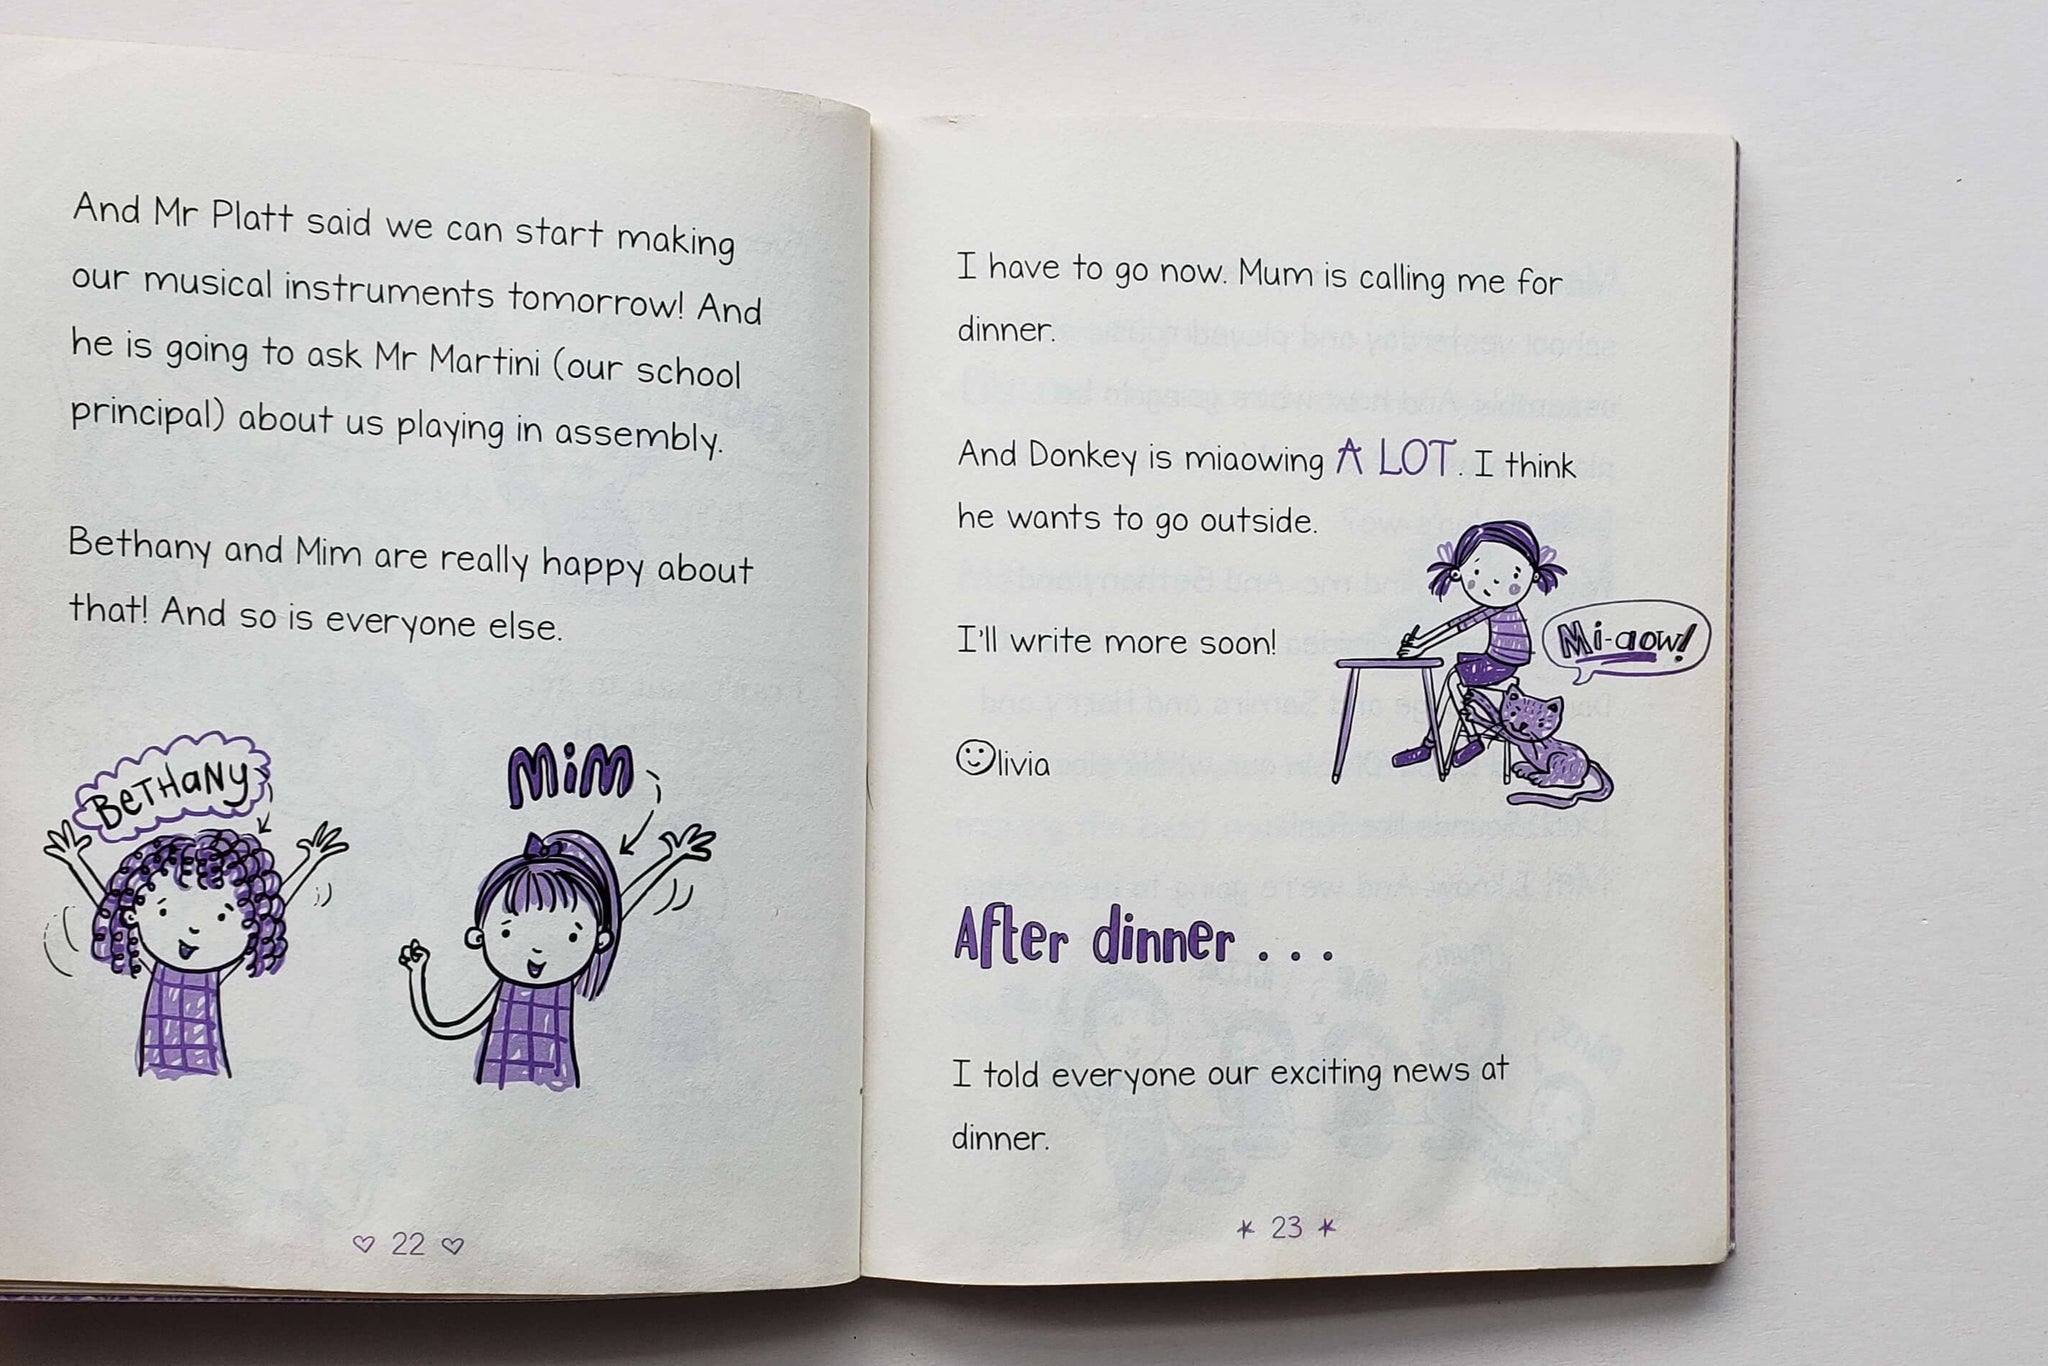 And Mr Platt said we can start making
our musical instruments tomorrow! And
he is going to ask Mr Martini (our school
principal) about us playing in assembly.
Bethany and Mim are really happy about
that! And so is everyone else.
BeTHaNY
MiM
22
I have to go now. Mum is calling me for
dinner.
And Donkey is miaowing A LOT. I think
he wants to go outside.
I'll write more soon!
Mi-aow!
Olivia
After dinner . . .
I told everyone our exciting news at
dinner.
23